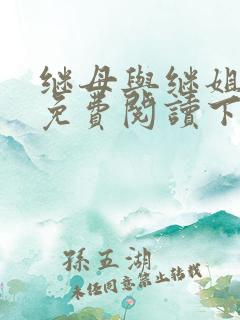 继母與继姐
免費閱讀下
孫五湖
未经同意禁止转载